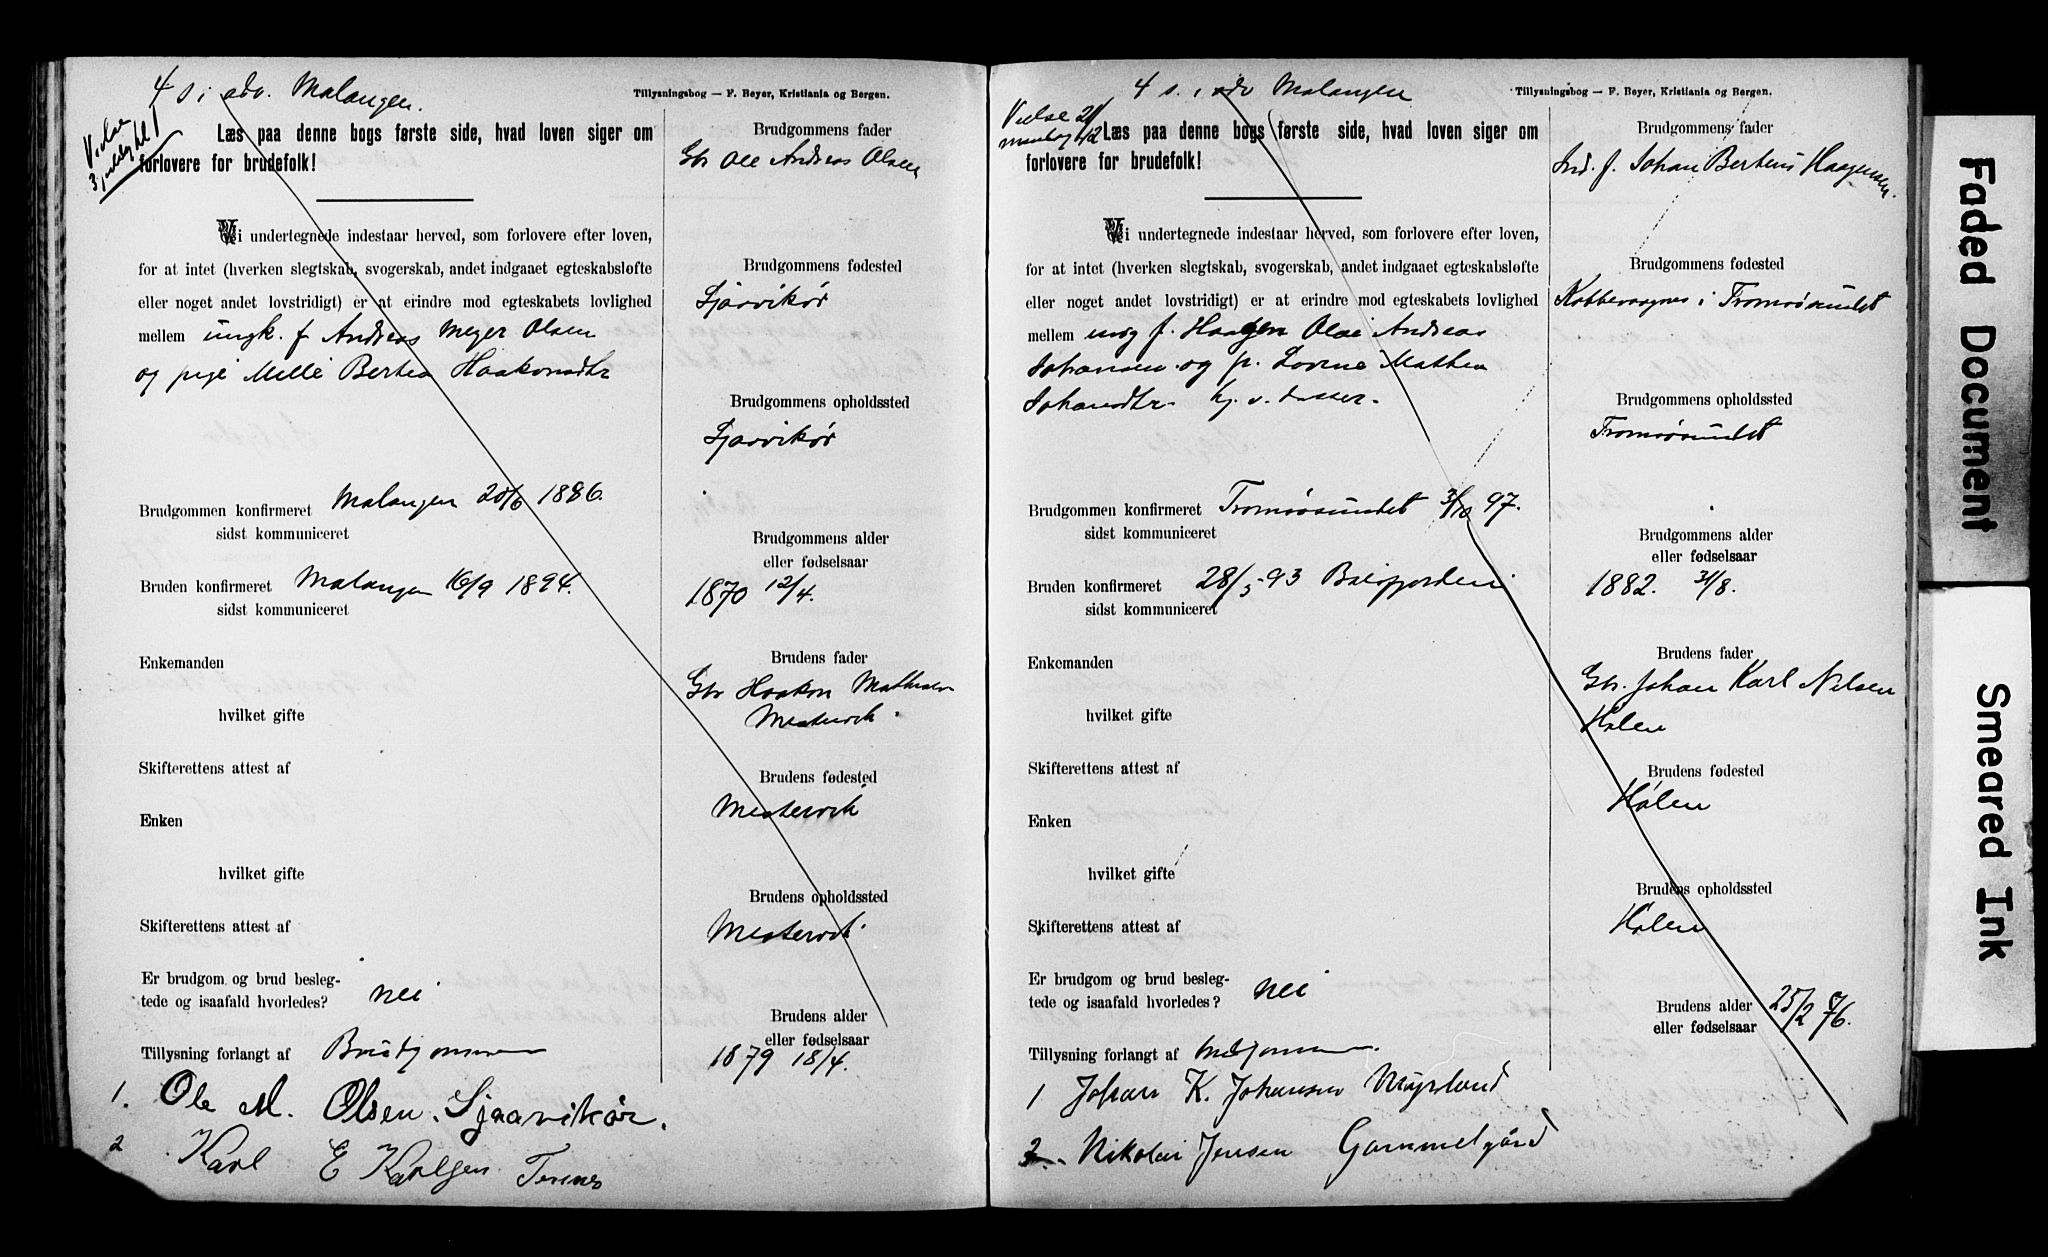 4 s. i adv. Malangen.
Vielse
3 juledag kl 1
Tillysningsbog — F. Beyer, Kristiania og Bergen.
Læs paa denne bogs første side, hvad loven siger om
forlovere for brudefolk!
Vi undertegnede indestaar herved, som forlovere efter loven,
for at intet (hverken slegtskab, svogerskab, andet indgaaet egteskabsløfte
eller noget andet lovstridigt) er at erindre mod egteskabets lovlighed
mellem ungk. f. Andreas Meyer Olsen
og pige Melle Bertea Haakonsdtr
Brudgommen konfirmeret Malangen 20/6 1886.
sidst kommuniceret
Bruden konfirmeret Malangen 16/9 1894.
sidst kommuniceret
Enkemanden
hvilket gifte
Skifterettens attest af
Enken
hvilket gifte
Skifterettens attest af
Er brudgom og brud besleg-
tede og isaafald hvorledes? nei
Tillysning forlangt af Brudgommen
Brudgommens fader
Gbr Ole Andreas Olsen
Brudgommens fødested
Sjaavikør
Brudgommens opholdssted
Sjaavikør
Brudgommens alder
eller fødselsaar
1870 12/4.
Brudens fader
Gbr Haakon Mathisen
Mestervik.
Brudens fødested
Mestervik
Brudens opholdssted
Mestervik.
Brudens alder
eller fødselsaar
1879 18/4.
1. Ole M. Olsen. Sjaavikør.
2 Karl E Karlsen Tennes
4 s. i adv Malangen
Vielse 21/12
mandag
Tillysningsbog — F. Beyer, Kristiania og Bergen.
Læs paa denne bogs første side, hvad loven siger om
forlovere for brudefolk!
Vi undertegnede indestaar herved, som forlovere efter loven,
for at intet (hverken slegtskab, svogerskab, andet indgaaet egteskabsløfte
eller noget andet lovstridigt) er at erindre mod egteskabets lovlighed
mellem ung f. Haagen Olai Andreas
Johansen og p. Lovine Mathea
Johansdtr.
Brudgommen konfirmeret Tromsøsundet 3/10 97.
sidst kommuniceret
Bruden konfirmeret 28/5 93 Balsfjorden
sidst kommuniceret
Enkemanden
hvilket gifte
Skifterettens attest af
Enken
hvilket gifte
Skifterettens attest af
Er brudgom og brud besleg-
tede og isaafald hvorledes? nei
Tillysning forlangt af brudgommen.
Brudgommens fader
Ind. f. Johan Bertius Haagensen.
Brudgommens fødested
Kobbevaagnes i Tromsøsundet
Brudgommens opholdssted
Tromsøsundet
Brudgommens alder
eller fødselsaar
1882. 31/8.
Brudens fader
Gbr. Johan Karl Nilsen
Holen
Brudens fødested
Holen
Brudens opholdssted
Holen
Brudens alder
eller fødselsaar 25/2 76.
1 Johan K. Johansen Myrlund
2. Nikolai Jensen Gammelgård
Faded Document
Smeared Ink